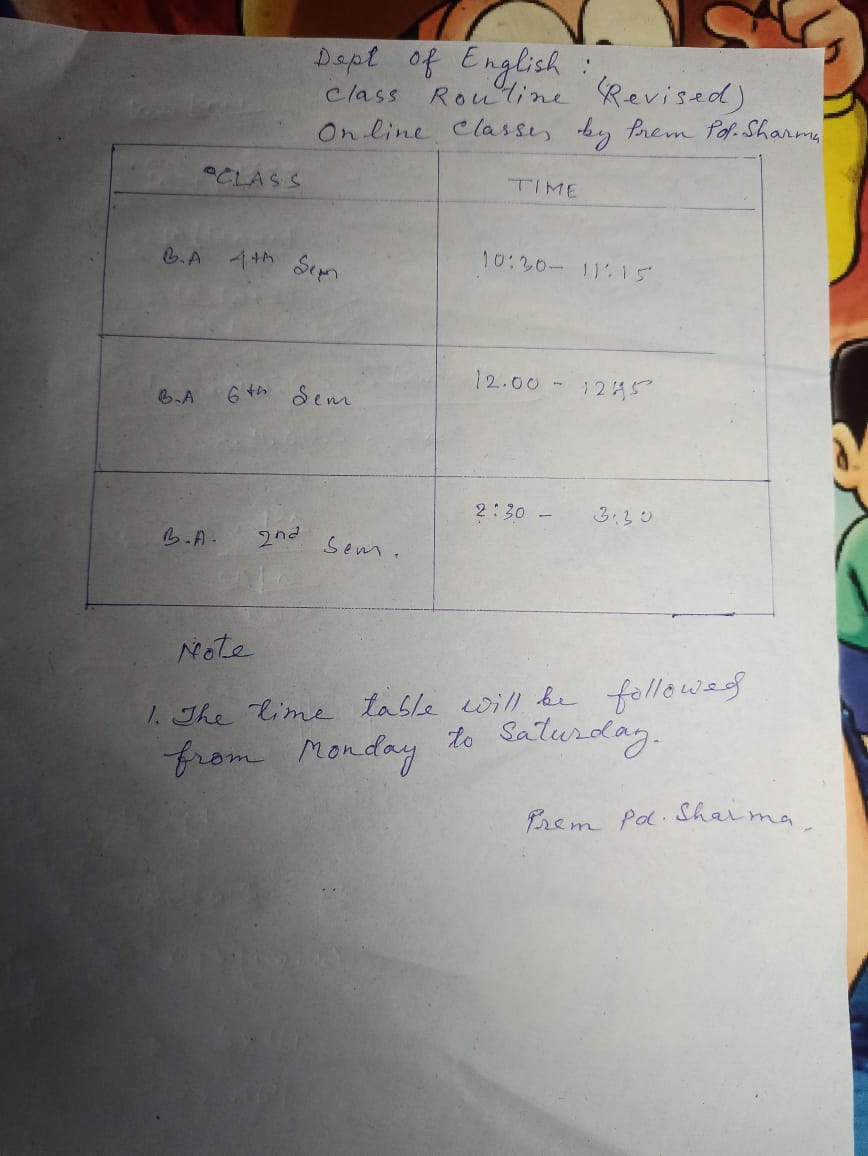 Dept of English :
Class Routine (Revised)
Online Classes by Prem Pd. Sharma
CLASS TIME
B.A 4th Sem 10:30 - 11:15
B.A 6th Sem 12.00 - 12:45
B.A. 2nd Sem. 2:30 - 3:30
Note
1. The time table will be followed
from Monday to Saturday.
Prem Pd. Sharma.